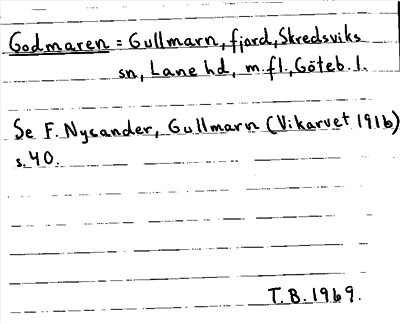 Godmaren = Gullmarn, fjord, Skredsviks
sn, Lane hd, m.fl., Göteb. l.
Se F. Nycander, Gullmarn (Vikarvet 1916)
s. 40.
T. B. 1969.